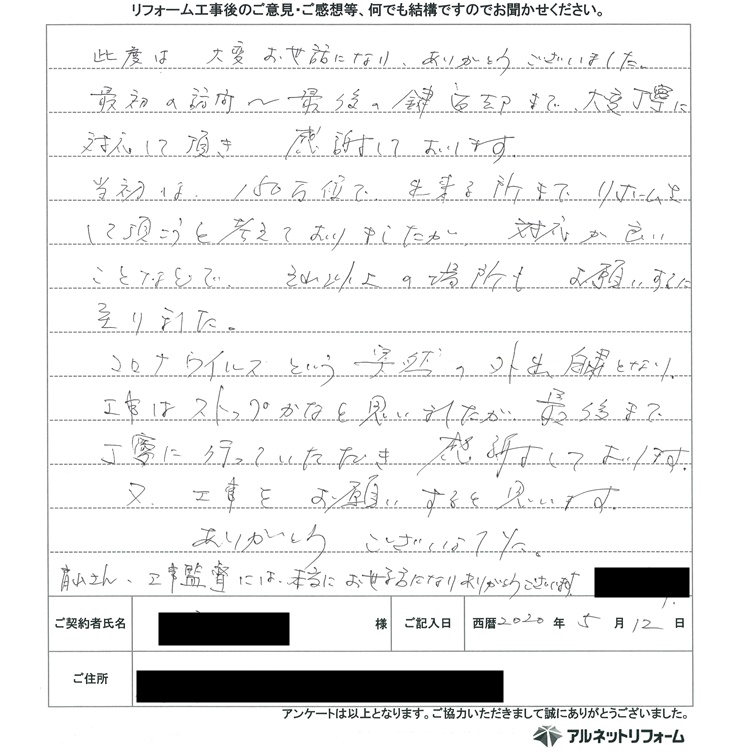 リフォーム工事後のご意見・ご感想等、何でも結構ですのでお聞かせください。
此度は 大変お世話になり、ありがとうございました。
最初の訪問〜最後の鍵返却まで、大変丁寧に
対応して頂き 感謝しております。
当初は、150万位で 出来る所まで リホームを
して頂こうと考えておりましたが 対応が良い
ことなどで、それ以上の場所も お願いするに
至りました。
コロナウイルスという 突然の外出自粛となり、
工事はストップかなと思いましたが 最後まで
丁寧に行っていただき 感謝しております。
又、工事を お願いすると思います。
ありがとう ございました。
青山さん、工事監督には、本当にお世話になりありがとうございます
ご契約者氏名 様 ご記入日 西暦2020年5月12日
ご住所
アンケートは以上となります。ご協力いただきまして誠にありがとうございました。
アルネットリフォーム